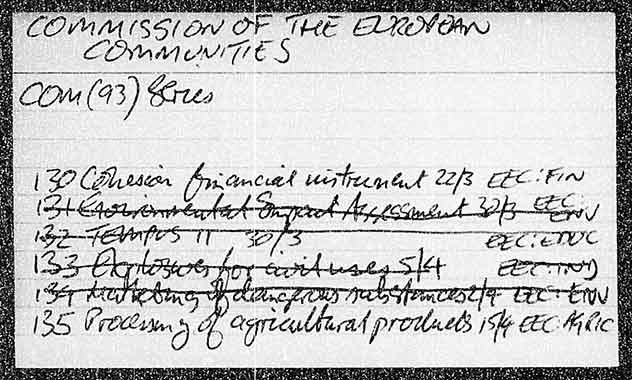 COMMISSION OF THE EUROPEAN
COMMUNITIES
COM(93) Series
130 Cohesion financial instrument 22/3 EEC:FIN
131 Environmental Impact Assessment 30/3 EEC:
ENV
132 TEMPUS II 30/3 EEC:EDUC
133 Explosives for civil uses 5/4 EEC:IND
134 Marketing of dangerous substances 2/4 EEC:ENV
135 Processing of agricultural products 15/4 EEC:AGRIC